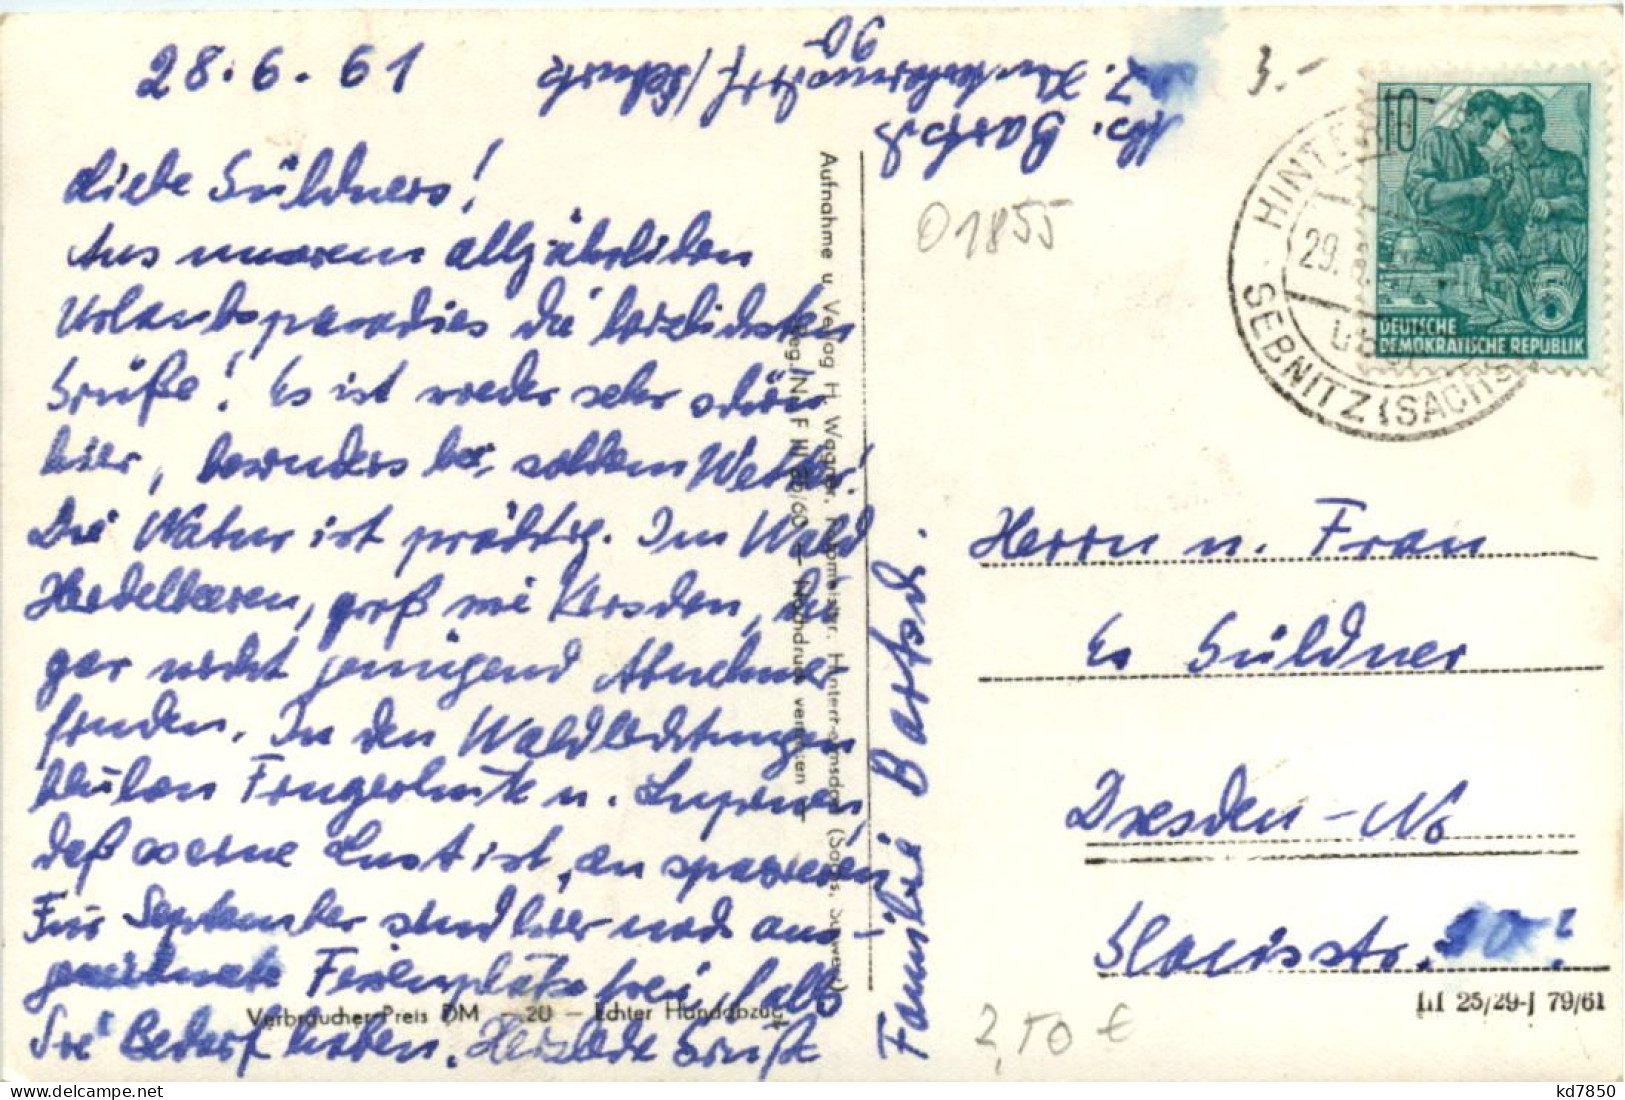 28.6.61
Liebe Süldners!
Aus unserem alljährlichen
Urlaubsparadies die herzlichsten
Grüße! Es ist wieder sehr schön
hier, besonders bei solchem Wetter!
Die Natur ist prächtig. Im Wald
Heidelbeeren, groß wie Kirschen, die
gar nicht genügend Abnehmer
finden. In den Waldlichtungen
blühen Fingerhüte u. Lupinen,
daß es eine Lust ist, zu spazieren.
Für September sind hier noch aus-
gezeichnete Ferienplätze frei, falls
Sie Bedarf haben. Herzliche Grüße
Familie Bartsch.
Bartsch
Aufnahme u. Verlag H. Wagner, Hinterhermsdorf (Sächs. Schweiz)
Reg./N F III 60 – Nachdruck verboten –
Verbraucher-Preis DM –20 – Echter Handabzug
01855
3.-
10
5
DEUTSCHE
DEMOKRATISCHE REPUBLIK
HINTERH
29.
SEBNITZ (SACHS
Herrn u. Frau
Süldner
Dresden-N6
III 25/29-J 79/61
2,50 €
kd7850